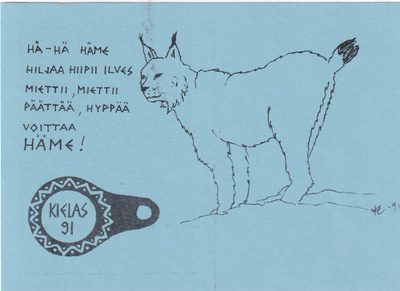 HÄ-HÄ HÄME
HILJAA HIIPII ILVES
MIETTII, MIETTII
PÄÄTTÄÄ, HYPPÄÄ
VOITTAA
HÄME!
KIELAS
91